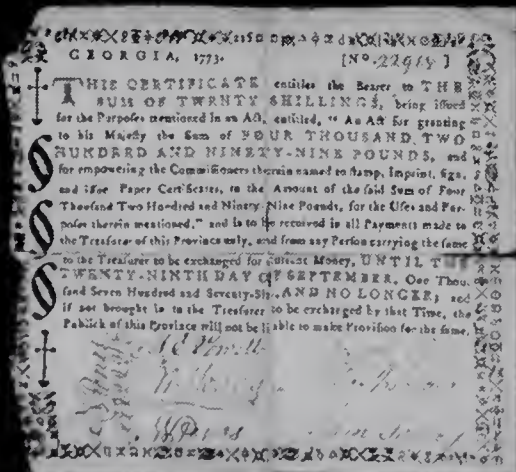 GEORGIA, 1773. [No. 22918]
THIS CERTIFICATE entitles the Bearer to THE
SUM OF TWENTY SHILLINGS, being iſſued
for the Purpoſes mentioned in an Act, entitled, "An Act for granting
to his Majeſty the Sum of FOUR THOUSAND TWO
HUNDRED AND NINETY-NINE POUNDS, and
for empowering the Commiſſioners therein named to ſtamp, Imprint, ſign,
and iſſue Paper Certificates, to the Amount of the ſaid Sum of Four
Thouſand Two Hundred and Ninety-Nine Pounds, for the Uſes and Pur-
poſes therein mentioned," and is to be received in all Payments made to
the Treaſurer of this Province only, and from any Perſon carrying the ſame
to the Treaſurer to be exchanged for current Money, UNTIL THE
TWENTY-NINTH DAY OF SEPTEMBER, One Thou-
ſand Seven Hundred and Seventy-Six, AND NO LONGER; and
if not brought in to the Treaſurer to be exchanged by that Time, the
Publick of this Province will not be liable to make Proviſion for the ſame.
Powell